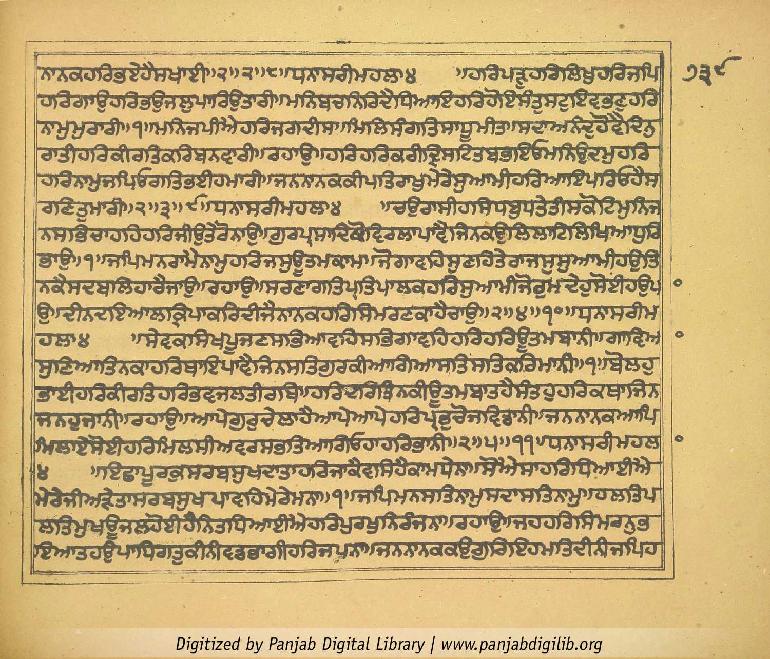 ਨਾਨਕਹਰਿਭਏਹੈਸਖਾਈ॥੨॥੨॥੮॥ਧਨਾਸਰੀਮਹਲਾ੪ ॥ਹਰਿਪੜੁਹਰਿਲਿਖੁਹਰਿਜਪਿ ੭੩੯
ਹਰਿਗਾਉਹਰਿਭਉਜਲੁਪਾਰਿਉਤਾਰੀ॥ਮਨਿਬਚਨਿਰਿਦੈਧਿਆਇਹਰਿਹੋਇਸੰਤੁਸਟੁਇਵਭਣੁਹਰਿ
ਨਾਮੁਮੁਰਾਰੀ॥੧॥ਮਨਿਜਪੀਐਹਰਿਜਗਦੀਸ॥ਮਿਲਿਸੰਗਤਿਸਾਧੂਮੀਤ॥ਸਦਾਅਨੰਦੁਹੋਵੈਦਿਨੁ
ਰਾਤੀਹਰਿਕੀਰਤਿਕਰਿਬਨਵਾਰੀ॥ਰਹਾਉ॥ਹਰਿਹਰਿਕਰੀਦ੍ਰਿਸਟਿਤਬਭਇਓਮਨਿਉਦਮੁਹਰਿ
ਹਰਿਨਾਮੁਜਪਿਓਗਤਿਭਈਹਮਾਰੀ॥ਜਨਨਾਨਕਕੀਪਤਿਰਾਖੁਮੇਰੇਸੁਆਮੀਹਰਿਆਇਪਰਿਓਹੈਸ
ਰਣਿਤੁਮਾਰੀ॥੨॥੩॥੯॥ਧਨਾਸਰੀਮਹਲਾ੪ ॥ਚਉਰਾਸੀਹਸਿਧਬੁਧਤੇਤੀਸਕੋਟਿਮੁਨਿਜ
ਨਸਭਿਚਾਹਹਿਹਰਿਜੀਉਤੇਰੋਨਾਉ॥ਗੁਰਪ੍ਰਸਾਦਿਕੋਵਿਰਲਾਪਾਵੈਜਿਨਕਉਲਿਲਾਟਿਲਿਖਿਆਧੁਰਿ
ਭਾਉ॥੧॥ਜਪਿਮਨਰਾਮੈਨਾਮੁਹਰਿਜਸੁਊਤਮਕਾਮ॥ਜੋਗਾਵਹਿਸੁਣਹਿਤੇਰਾਜਸੁਸੁਆਮੀਹਉਤਿ
ਨਕੈਸਦਬਲਿਹਾਰੈਜਾਉ॥ਰਹਾਉ॥ਸਰਣਾਗਤਿਪ੍ਰਤਿਪਾਲਕਹਰਿਸੁਆਮੀਜੋਤੁਮਦੇਹੁਸੋਈਹਉਪ
ਉ॥ਦੀਨਦਇਆਲਕ੍ਰਿਪਾਕਰਿਦੀਜੈਨਾਨਕਹਰਿਸਿਮਰਣਕਾਹੈਚਾਉ॥੨॥੪॥੧੦॥ਧਨਾਸਰੀਮ
ਹਲਾ੪ ॥ਸੇਵਕਸਿਖਪੂਜਣਸਭਿਆਵਹਿਸਭਿਗਾਵਹਿਹਰਿਹਰਿਊਤਮਬਾਨੀ॥ਗਾਵਿਅ
ਸੁਣਿਆਤਿਨਕਾਹਰਿਥਾਇਪਾਵੈਜਿਨਸਤਿਗੁਰਕੀਆਗਿਆਸਤਿਸਤਿਕਰਿਮਾਨੀ॥੧॥ਬੋਲਹੁ
ਭਾਈਹਰਿਕੀਰਤਿਹਰਿਭਵਜਲਤੀਰਥਿ॥ਹਰਿਦਰਿਤਿਨਕੀਊਤਮਬਾਤਹੈਸੰਤਹੁਹਰਿਕਥਾਜਿਨ
ਜਨਹੁਜਾਨੀ॥ਰਹਾਉ॥ਆਪੇਗੁਰੁਚੇਲਾਹੈਆਪੇਆਪੇਹਰਿਪ੍ਰਭੁਚੋਜਵਿਡਾਨੀ॥ਜਨਨਾਨਕਆਪਿ
ਮਿਲਾਏਸੋਈਹਰਿਮਿਲਸੀਅਵਰਸਭਤਿਆਗਿਓਹਾਹਰਿਭਾਨੀ॥੨॥੫॥੧੧॥ਧਨਾਸਰੀਮਹਲ
੪ ॥ਇਛਾਪੂਰਕੁਸਰਬਸੁਖਦਾਤਾਹਰਿਜਾਕੈਵਸਿਹੈਕਾਮਧੇਨਾ॥ਸੋਐਸਾਹਰਿਧਿਆਈਐ
ਮੇਰੇਜੀਅੜੇਤਾਸਰਬਸੁਖਪਾਵਹਿਮੇਰੇਮਨਾ॥੧॥ਜਪਿਮਨਸਤਿਨਾਮੁਸਦਾਸਤਿਨਾਮੁ॥ਹਲਤਿਪ
ਲਤਿਮੁਖਊਜਲਹੋਈਹੈਨਿਤਧਿਆਈਐਹਰਿਪੁਰਖੁਨਿਰੰਜਨਾ॥ਰਹਾਉ॥ਜਹਹਰਿਸਿਮਰਨੁਭ
ਇਆਤਹਉਪਾਧਿਗਤੁਕੀਨੀਵਡਭਾਗੀਹਰਿਜਪਨਾ॥ਜਨਨਾਨਕਕਉਗੁਰਿਇਹਮਤਿਦੀਨੀਜਪਿਹ
Digitized by Panjab Digital Library | www.panjabdigilib.org